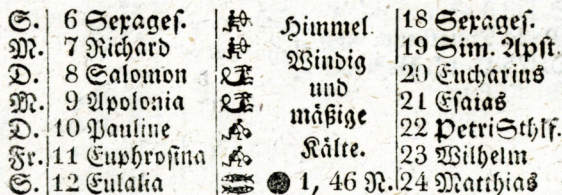 S. 6 Sexages. Himmel 18 Sexages.
M. 7 Richard Windig 19 Sim. Apst.
D. 8 Salomon und 20 Eucharius
M. 9 Apolonia mäßige 21 Esaias
D. 10 Pauline Kälte. 22 Petri Sthlf.
Fr. 11 Euphrosina 23 Wilhelm
S. 12 Eulalia 1, 46 N. 24 Matthias